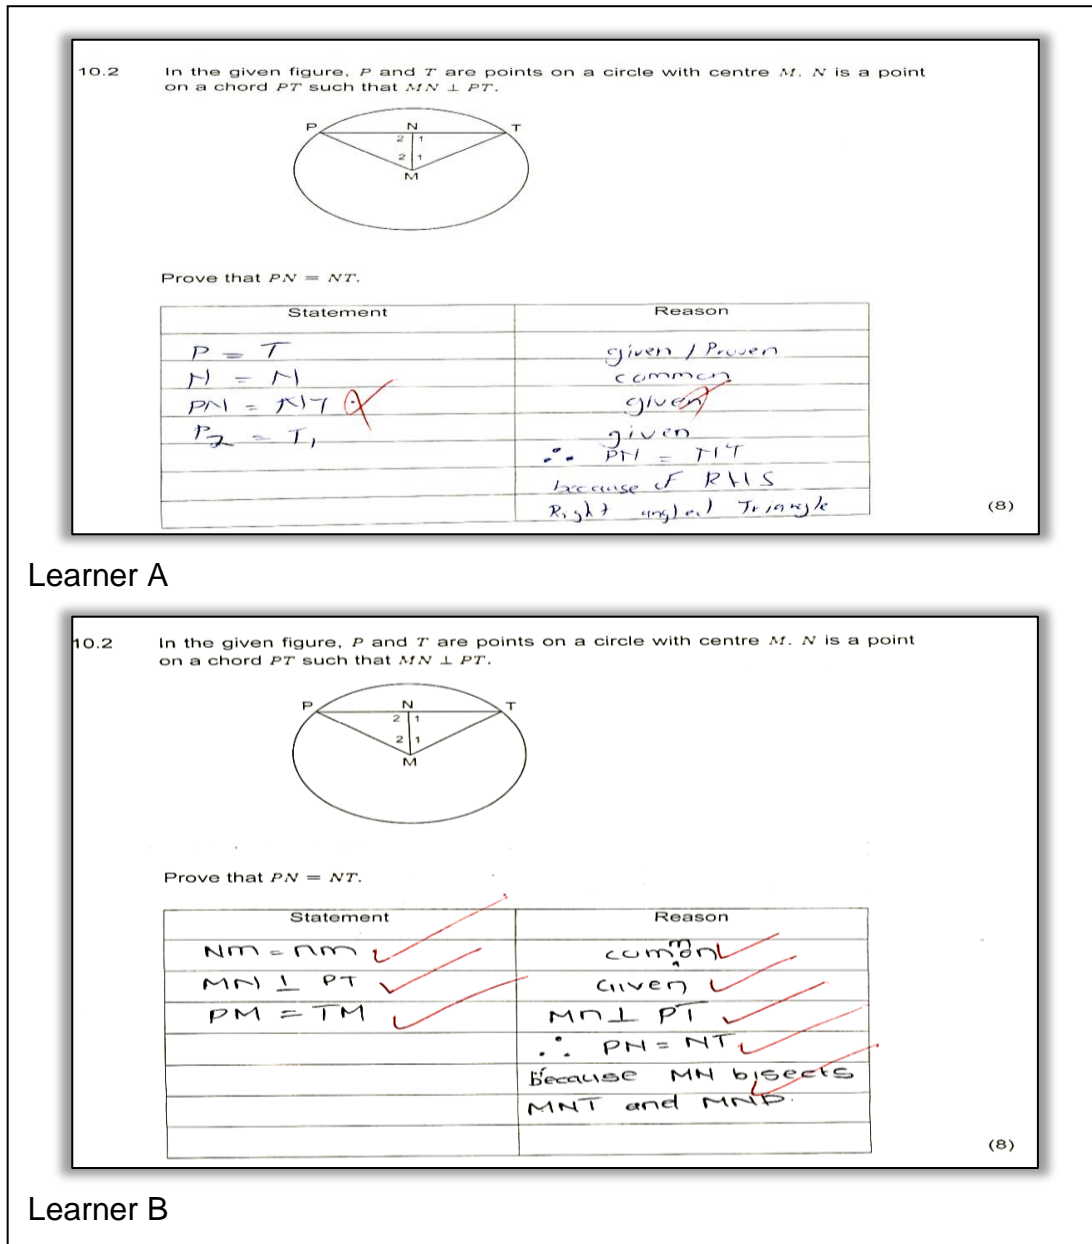 10.2 In the given figure, P and T are points on a circle with centre M. N is a point
on a chord PT such that MN ⊥ PT.
P N T
2 1
2 1
M
Prove that PN = NT.
Statement Reason
P = T given / Proven
N = N common
PN = NT given
P2 = T1 given
∴ PN = NT
because of RHS
Right angled Triangle (8)
Learner A
10.2 In the given figure, P and T are points on a circle with centre M. N is a point
on a chord PT such that MN ⊥ PT.
P N T
2 1
2 1
M
Prove that PN = NT.
Statement Reason
Nm = nm common
MN ⊥ PT Given
PM = TM Mn ⊥ PT
∴ PN = NT
Because MN bisects
MNT and MNP.
(8)
Learner B